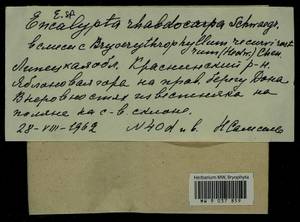 E. sp.
Encalypta rhabdocarpa Schwaegr.
в смеси с Bryoerythrophyllum recurvirost
rum (Hedw.) Chen
Липецкая обл. Краснинский р-н.
Яблоновая гора на прав. берегу Дона
В неровностях известняка на
поляне на с-в. склоне.
28-VIII-1962 N 40 d
Herbarium MW, Bryophyta
MW 9 037 859